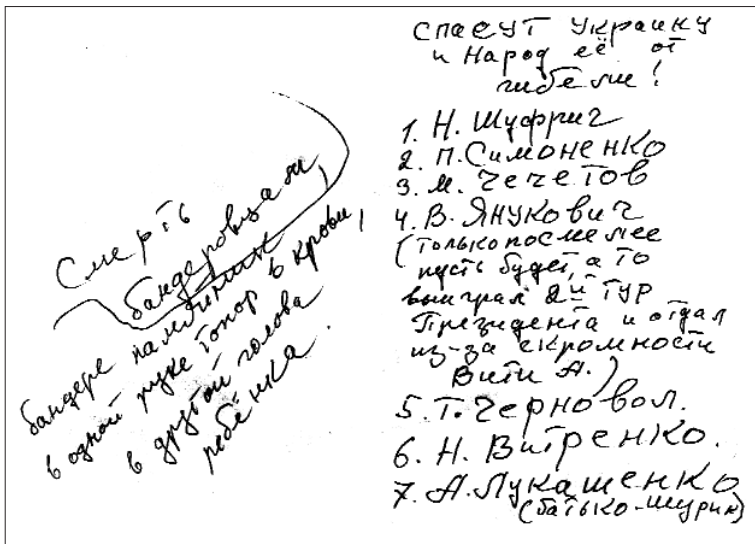 Смерть
бандеровцам,
бандере памятник
в одной руке топор в крови,
в другой голова
ребёнка.
спасут Украину
и Народ её от
гибели!
1. Н. Шуфрич
2. П. Симоненко
3. М. Чечетов
4. В. Янукович
(только посмелее
пусть будет, а то
выиграл 2й тур
Президента и отдал
из-за скромности
Вити А.)
5. Т. Черновол.
6. Н. Витренко.
7. А. Лукашенко
(батько-шурин)